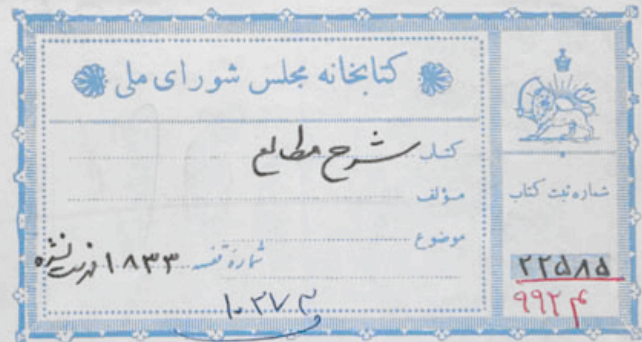 کتابخانه مجلس شورای ملی
کتاب شرح مطالع
مؤلف
موضوع
شماره قفسه ۱۸۳۳ فهرست نشده
۱۰۳۷۳
شماره ثبت کتاب
۲۲۵۸۵
۹۹۲۴